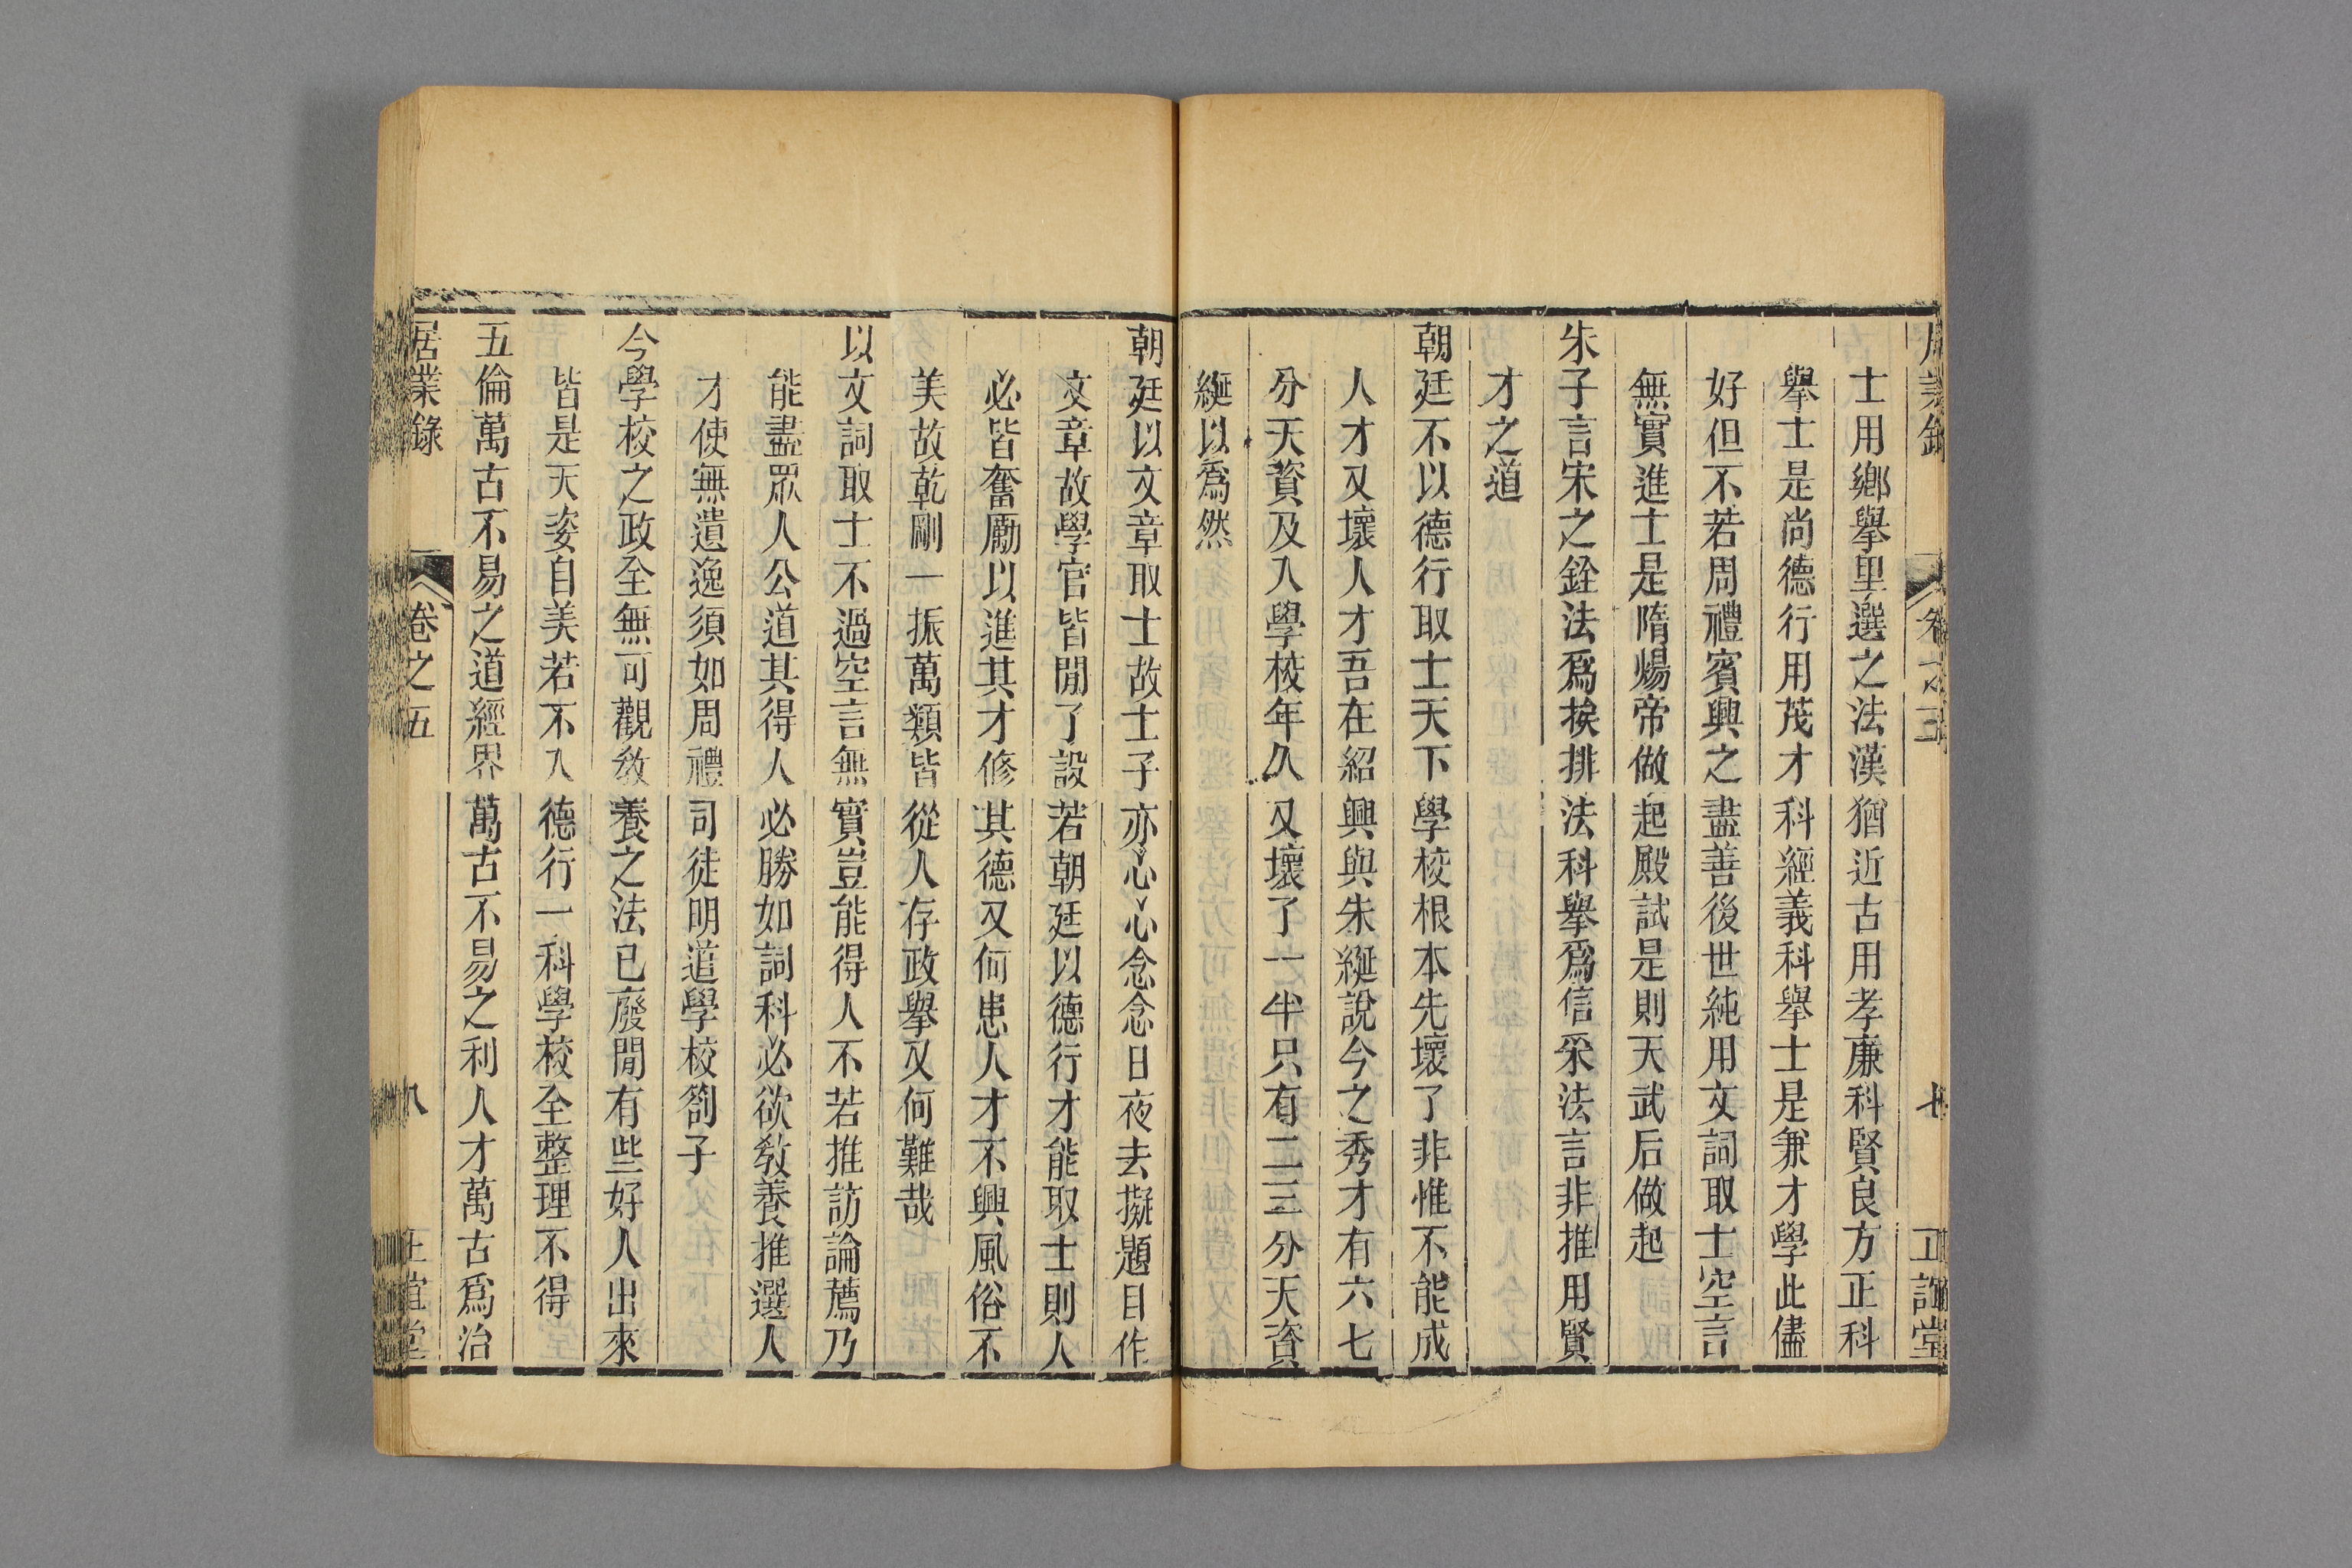 士用鄉舉里選之法漢猶近古用孝廉科賢良方正科
舉士是尚德行用茂才科經義科舉士是兼才學此儘
好但不若周禮賓興之盡善後世純用文詞取士空言
無實進士是隋煬帝做起殿試是則天武后做起
朱子言宋之銓法爲挨排法科舉爲信采法言非推用賢
才之道
朝廷不以德行取士天下學校根本先壞了非惟不能成
人才又壞人才吾在紹興與朱綖說今之秀才有六七
分天資及入學校年久又壞了一半只有二三分天資
綖以爲然
朝廷以文章取士故士子亦心心念念日夜去擬題目作
文章故學官皆閒了設若朝廷以德行才能取士則人
必皆奮勵以進其才修其德又何患人才不興風俗不
美故乾剛一振萬類皆從人存政舉又何難哉
以文詞取士不過空言無實豈能得人不若推訪論薦乃
能盡眾人公道其得人必勝如詞科必欲敎養推選人
才使無遺逸須如周禮司徒明道學校劄子
今學校之政全無可觀敎養之法已廢閒有些好人出來
皆是天姿自美若不入德行一科學校全整理不得
五倫萬古不易之道經界萬古不易之利人才萬古爲治
居業錄
卷之五
八
正誼堂